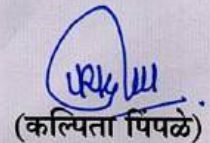 (कल्पिता पिंपळे)